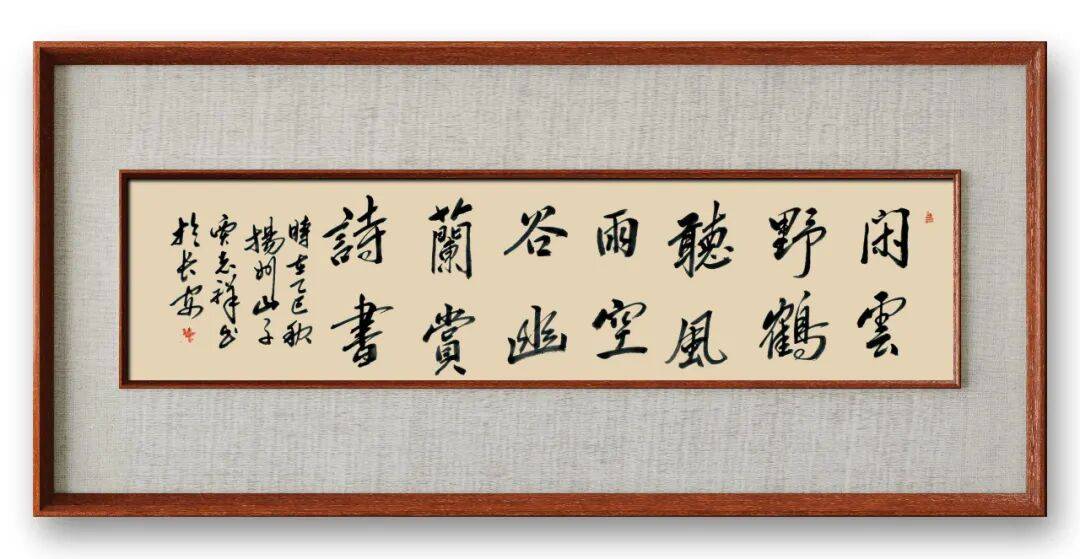 闲雲
野鶴
聽風
雨空
谷幽
蘭賞
詩書
時在乙巳秋
揚州山子
賈志祥书
於长安